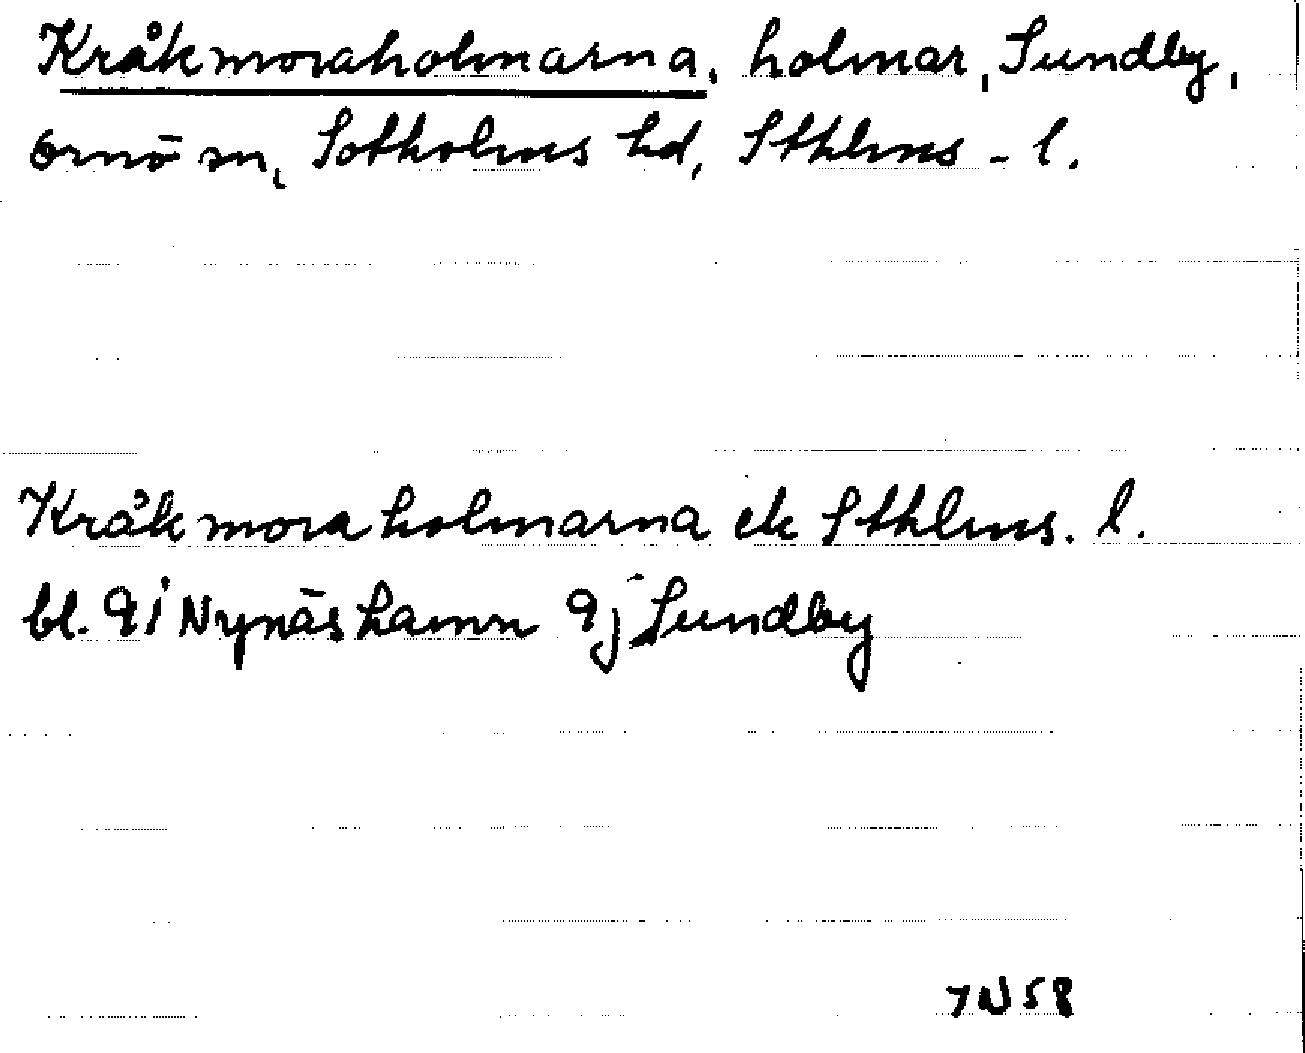 Kråkmoraholmarna, holmar, Sundby,
Ornö sn, Sotholms hd, Sthlms - l.
Kråkmoraholmarna ek Sthlms. l.
bl. 9i Nynäshamn 9j Sundby
7N58